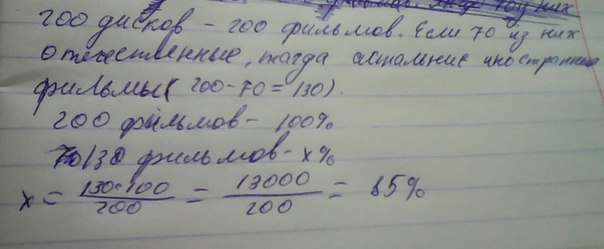 200 дисков - 200 фильмов. Если 70 из них
отечественные, тогда остальние иностранние
фильмы (200-70=130).
200 фильмов - 100%
130 фильмов - x%
x = 130·100/200 = 13000/200 = 65%